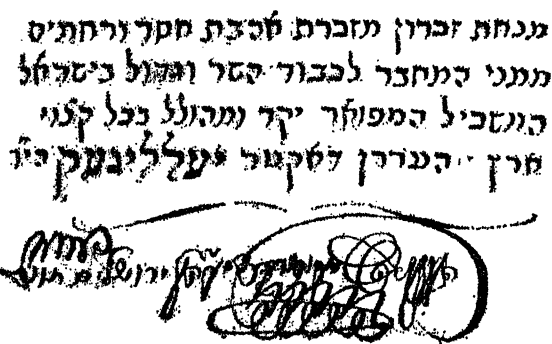 מנחת זכרון מזכרת אהבת חסד ורחמים
ממני המחבר לכבוד השר וגדול בישראל
המשכיל המפואר יקר ומהולל בכל קצוי
ארץ הנדרון דאקטור יעללינעק
ירושלים